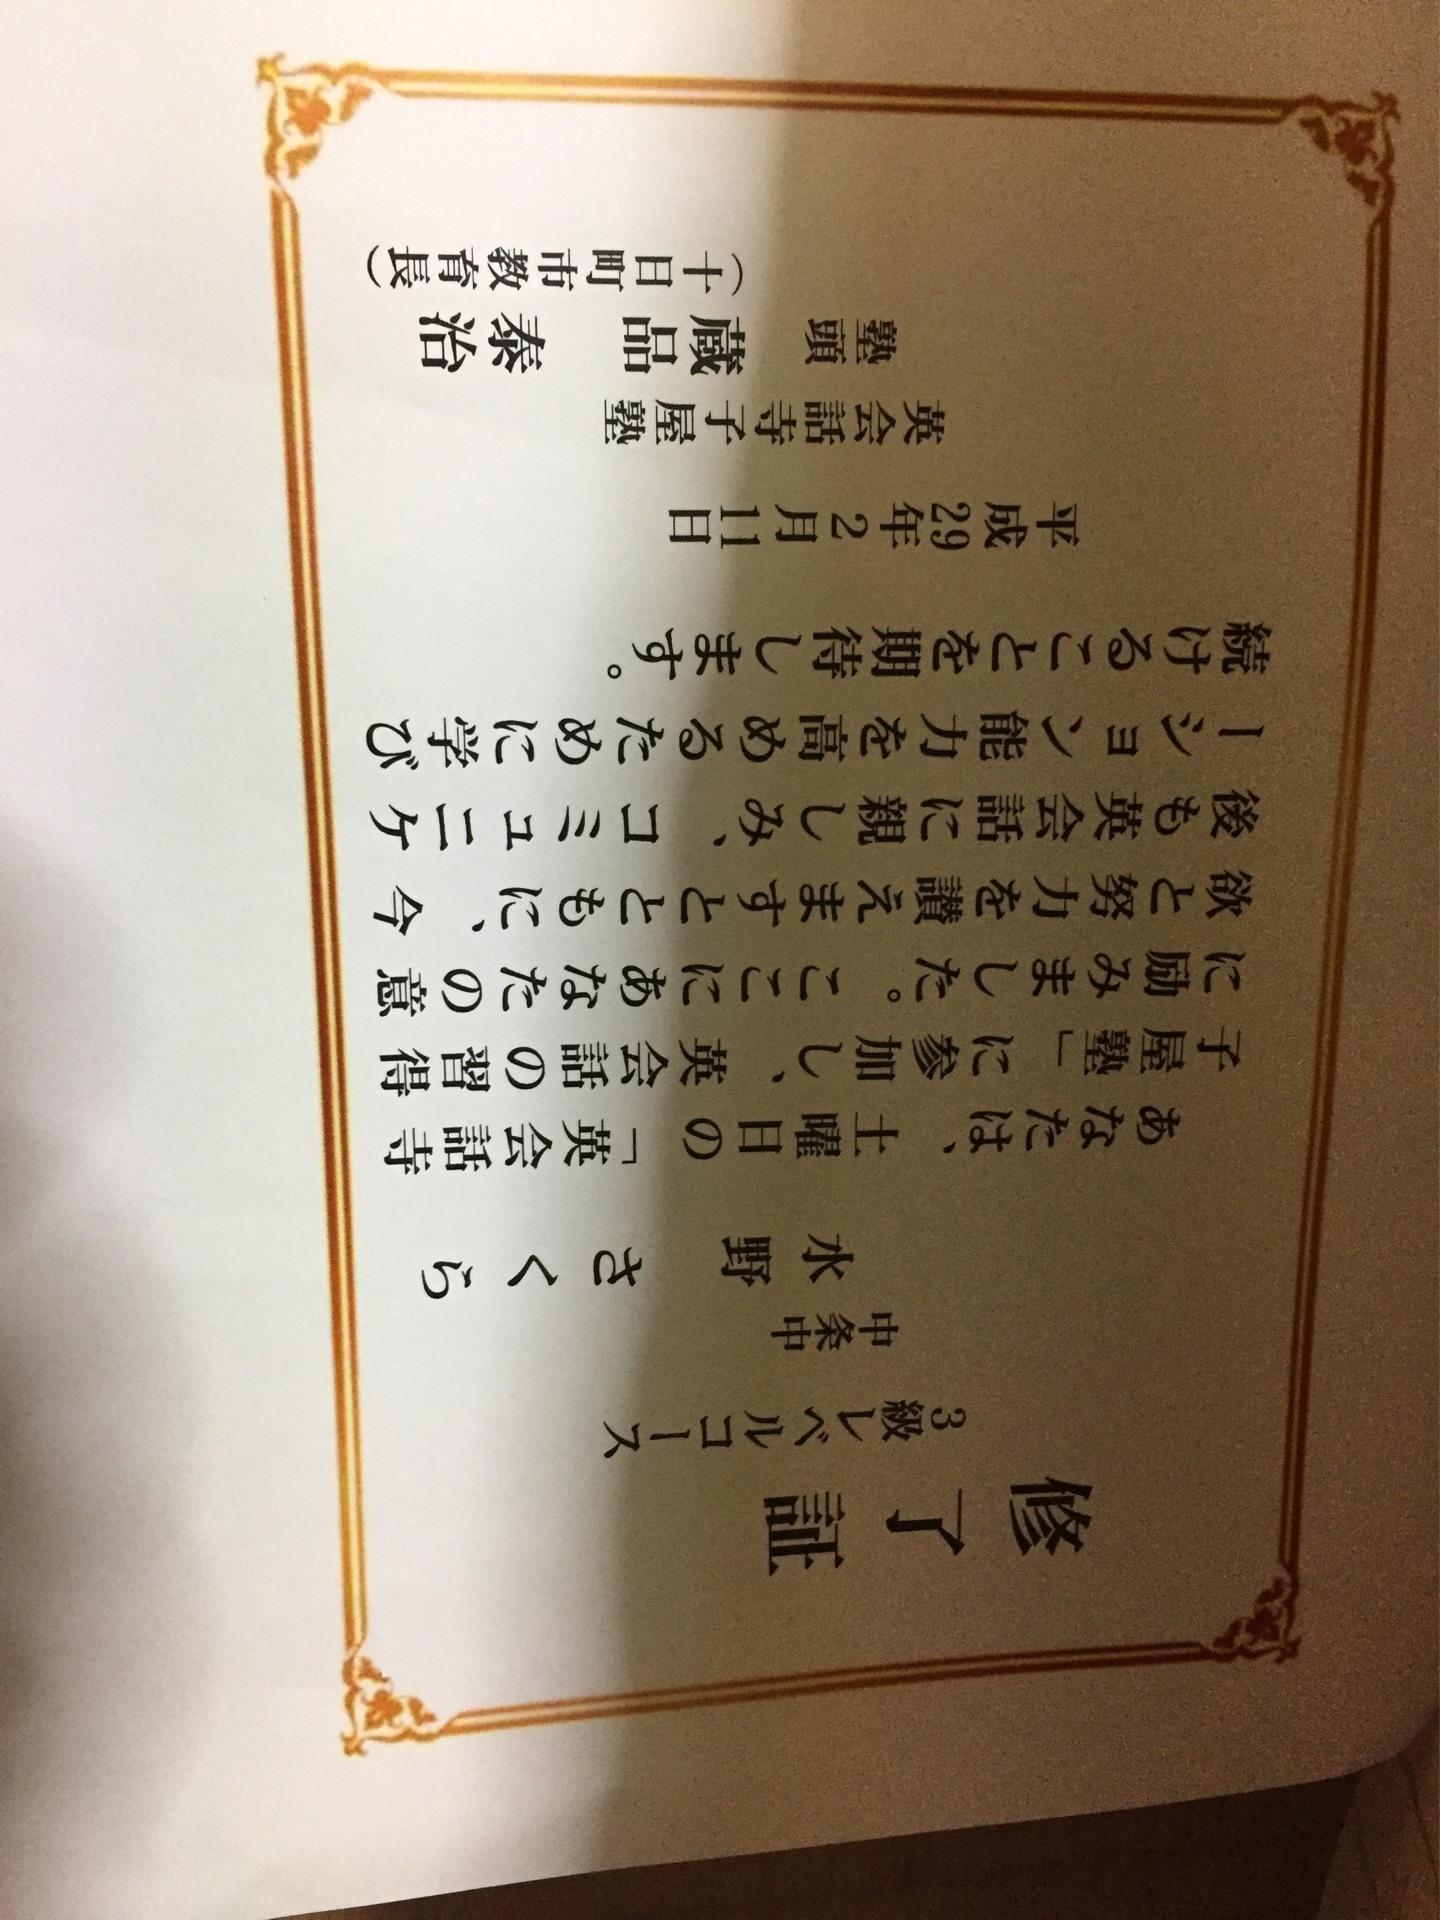 修了証
3級レベルコース
中条中
水野 さくら
あなたは、土曜日の「英会話寺
子屋塾」に参加し、英会話の習得
に励みました。ここにあなたの意
欲と努力を讃えますとともに、今
後も英会話に親しみ、コミュニケ
ーション能力を高めるために学び
続けることを期待します。
平成29年2月11日
英会話寺子屋塾
塾頭 蔵品 泰治
(十日町市教育長)